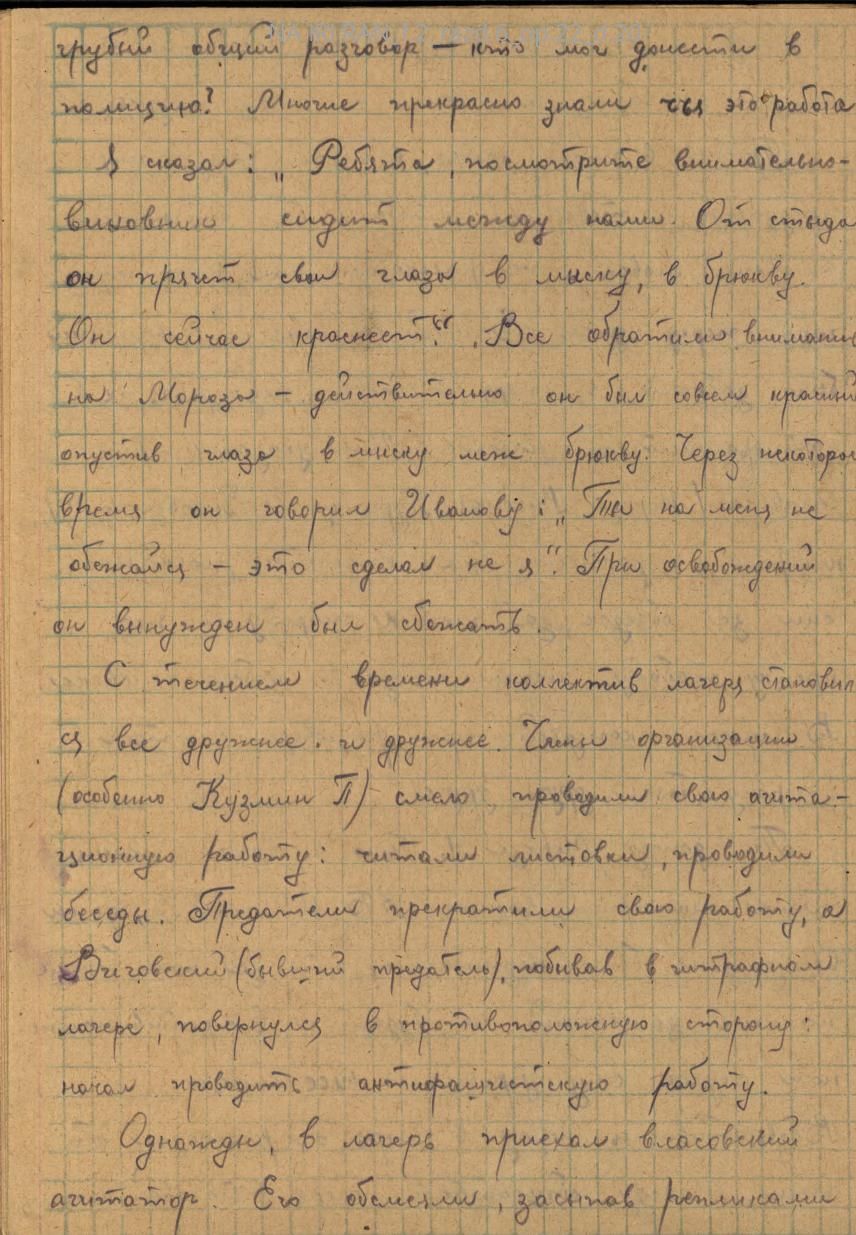 грубый общий разговор — кто мог донести в
полицию? Многие прекрасно знали чья это работа
Я сказал: „Ребята, посмотрите внимательно-
виновник сидит между нами. От стыда
он прячет свои глаза в миску, в брюкву.
Он сейчас краснеет". Все обратили внимание
на Мороза — действительно он был совсем красный
опустив глаза в миску меж брюкву. Через некоторое
время он говорил Иванову: „Ты на меня не
обежайся — это сделал не я". При освобождений
он вынужден был сбежать.
С течением времени коллектив лагеря становил
ся все дружнее и дружнее. Члены организации
(особенно Кузмин П) смело проводили свою агита-
ционную работу: читали листовки, проводили
беседы. Предатели прекратили свою работу, а
Виговский (бывший предатель), побывав в штрафном
лагере, повернулся в противоположную сторону:
начал проводить антифашистскую работу.
Однажды, в лагерь приехал власовский
агитатор. Его обсмеяли, засыпав репликами